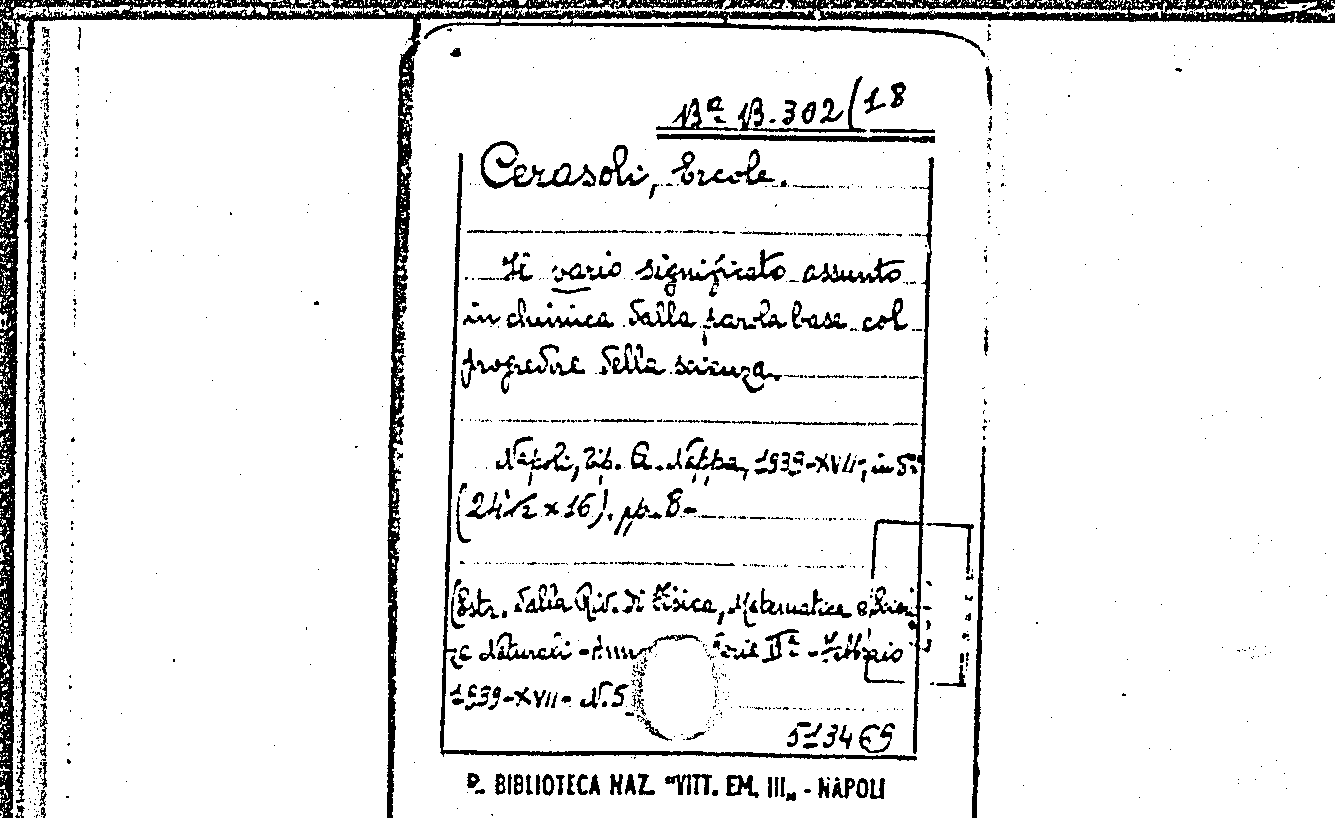 Bª B. 302(18
Cerasoli, Ercole.
Il vario significato assunto
in chimica dalla parola base col
progredire della scienza.
Napoli, Tip. A. Nappa, 1939-XVII, in 8º
(24½ x 16). pp. 8-
(Estr. dalla Riv. di Fisica, Matematica e Scien-
ze Naturali - Anno Serie IIª - Febbraio
1939-XVII- N. 5
5134
R. BIBLIOTECA NAZ. "VITT. EM. III„ - NAPOLI